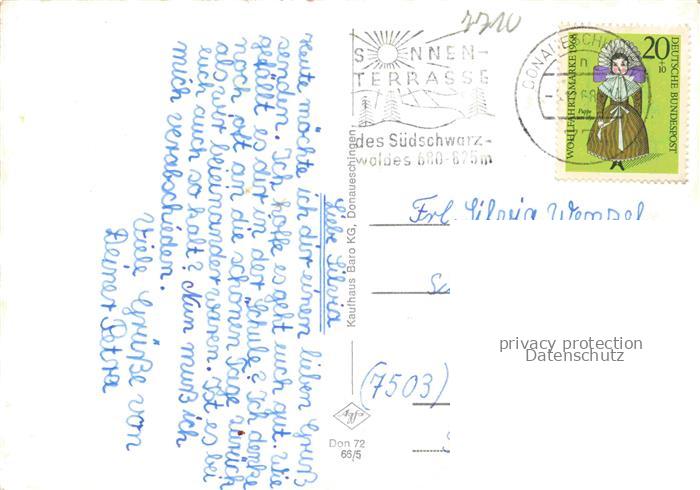 7710
SONNEN-
TERRASSE
des Südschwarz-
waldes 680-875m
DONAUESCHINGEN
WOHLFAHRTSMARKE 1968
Puppe
20
+10
DEUTSCHE BUNDESPOST
Liebe Silvia
Heute möchte ich dir einen lieben Gruß
senden. Ich hoffe es geht euch gut. Wie
gefällt es dir in der Schule? Ich denke
noch oft an die schönen Tage zurück
als wir beieinander waren. Ist es bei
euch auch so kalt? Nun muß ich
mich verabschieden.
Viele Grüße von
Deiner Petra
Kaufhaus Baro KG, Donaueschingen
Frl. Silvia Wenzel
(7503)
privacy protection
Datenschutz
Agfa
Don 72
66/5